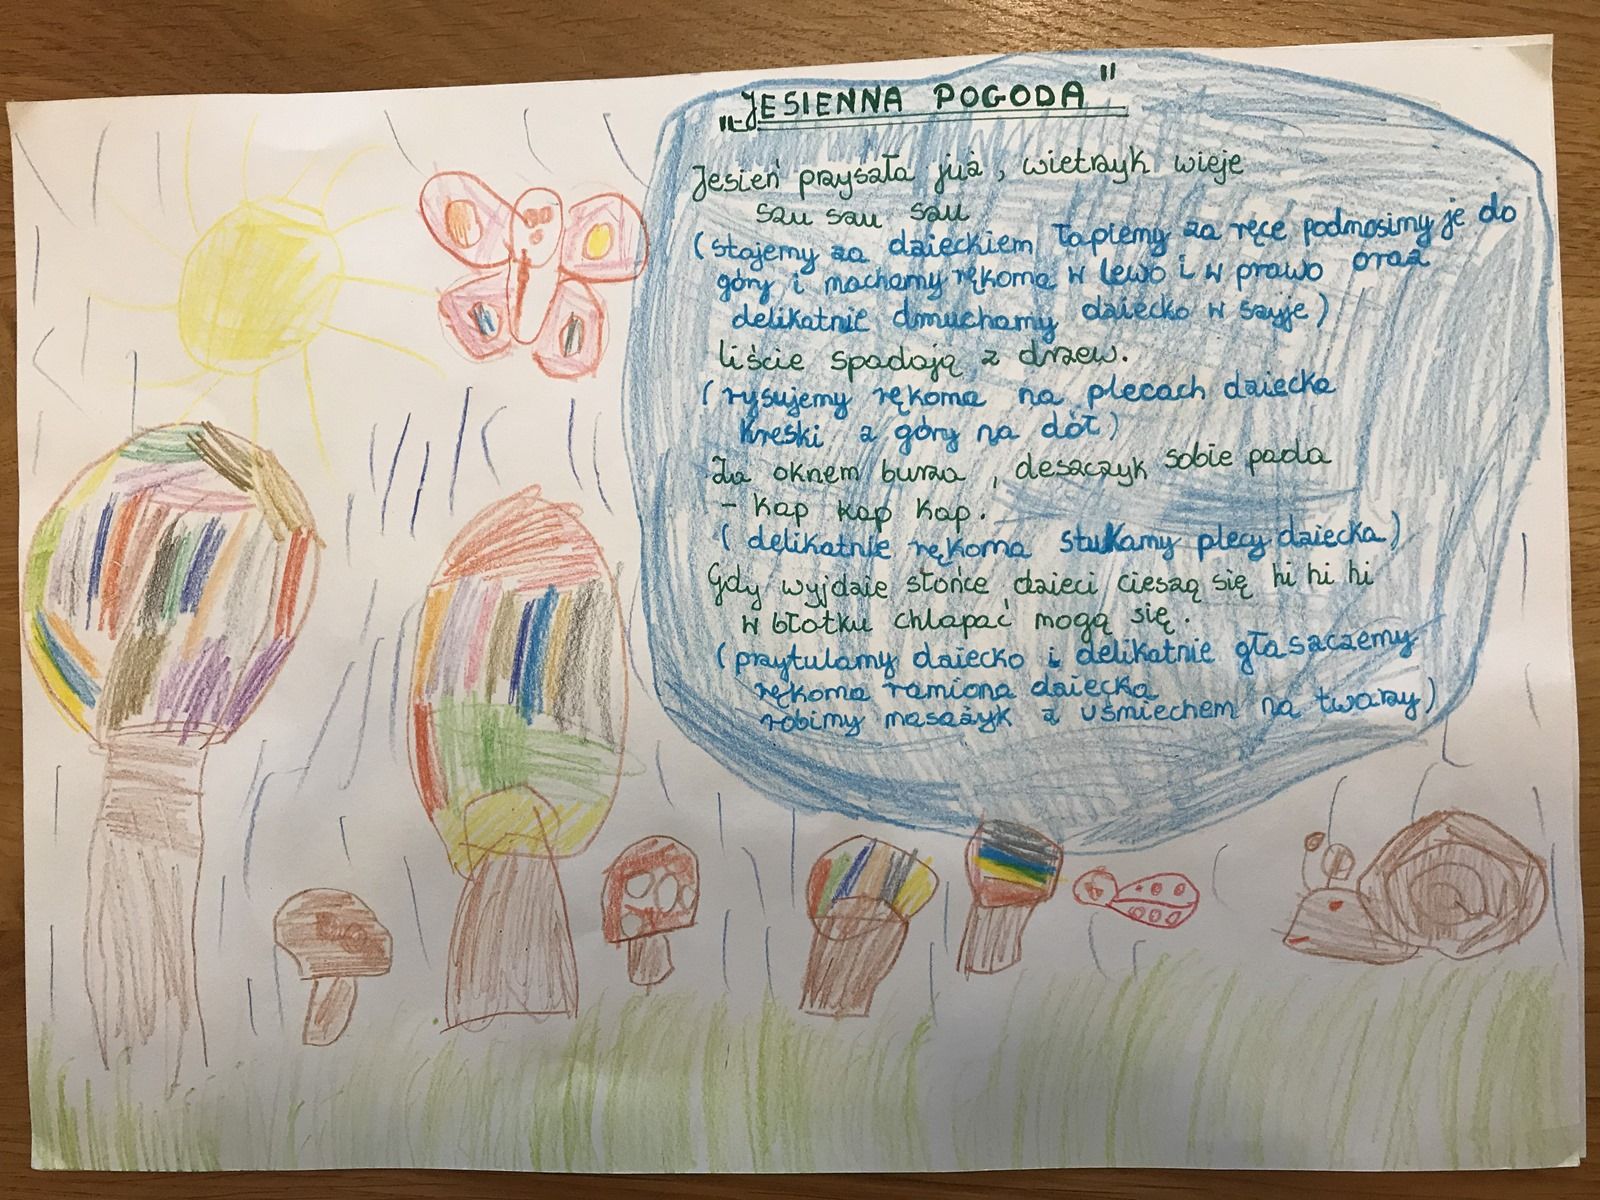 „JESIENNA POGODA"
Jesień przyszła już, wietrzyk wieje
szu szu szu
(stajemy za dzieckiem łapiemy za ręce podnosimy je do
góry i machamy rękoma w lewo i w prawo oraz
delikatnie dmuchamy dziecko w szyję)
liście spadają z drzew.
(rysujemy rękoma na plecach dziecka
kreski z góry na dół)
Za oknem burza, deszczyk sobie pada
- kap kap kap.
(delikatnie rękoma stukamy plecy dziecka)
Gdy wyjdzie słońce dzieci cieszą się hi hi hi
w błotku chlapać mogą się.
(przytulamy dziecko i delikatnie głaszczemy
rękoma ramiona dziecka
robimy masażyk z uśmiechem na twarzy)